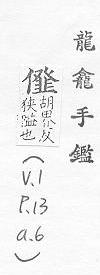 龍龕手鑑
胡界反
狹隘也
(V.1
P.13
a.6)